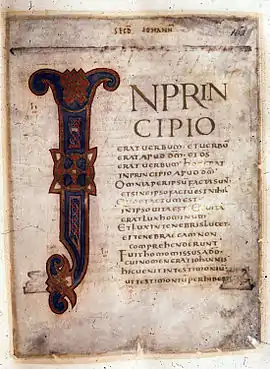 SECD IOHANN
INPRIN
CIPIO
ERATUERBUM· ETUERBŪ
ERATAPUD DM· ETDS
ERATUERBUM· HOCERAT
INPRINCIPIO APUD DM
OMNIAPERIPSUFACTASUNT
ETSINEIPSOFACTUESTNIHIL
QUODFACTUMEST
INIPSOUITAEST· ETUITA
ERATLUXHOMINUM
ETLUXINTENEBRISLUCET
ETTENEBRAEEAMNON
COMPREHENDERUNT
FUITHOMOMISSUSADO
CUINOMENERATIOHANNIS
HICUENITINTESTIMONIU
UTTESTIMONIUPERHIBERET